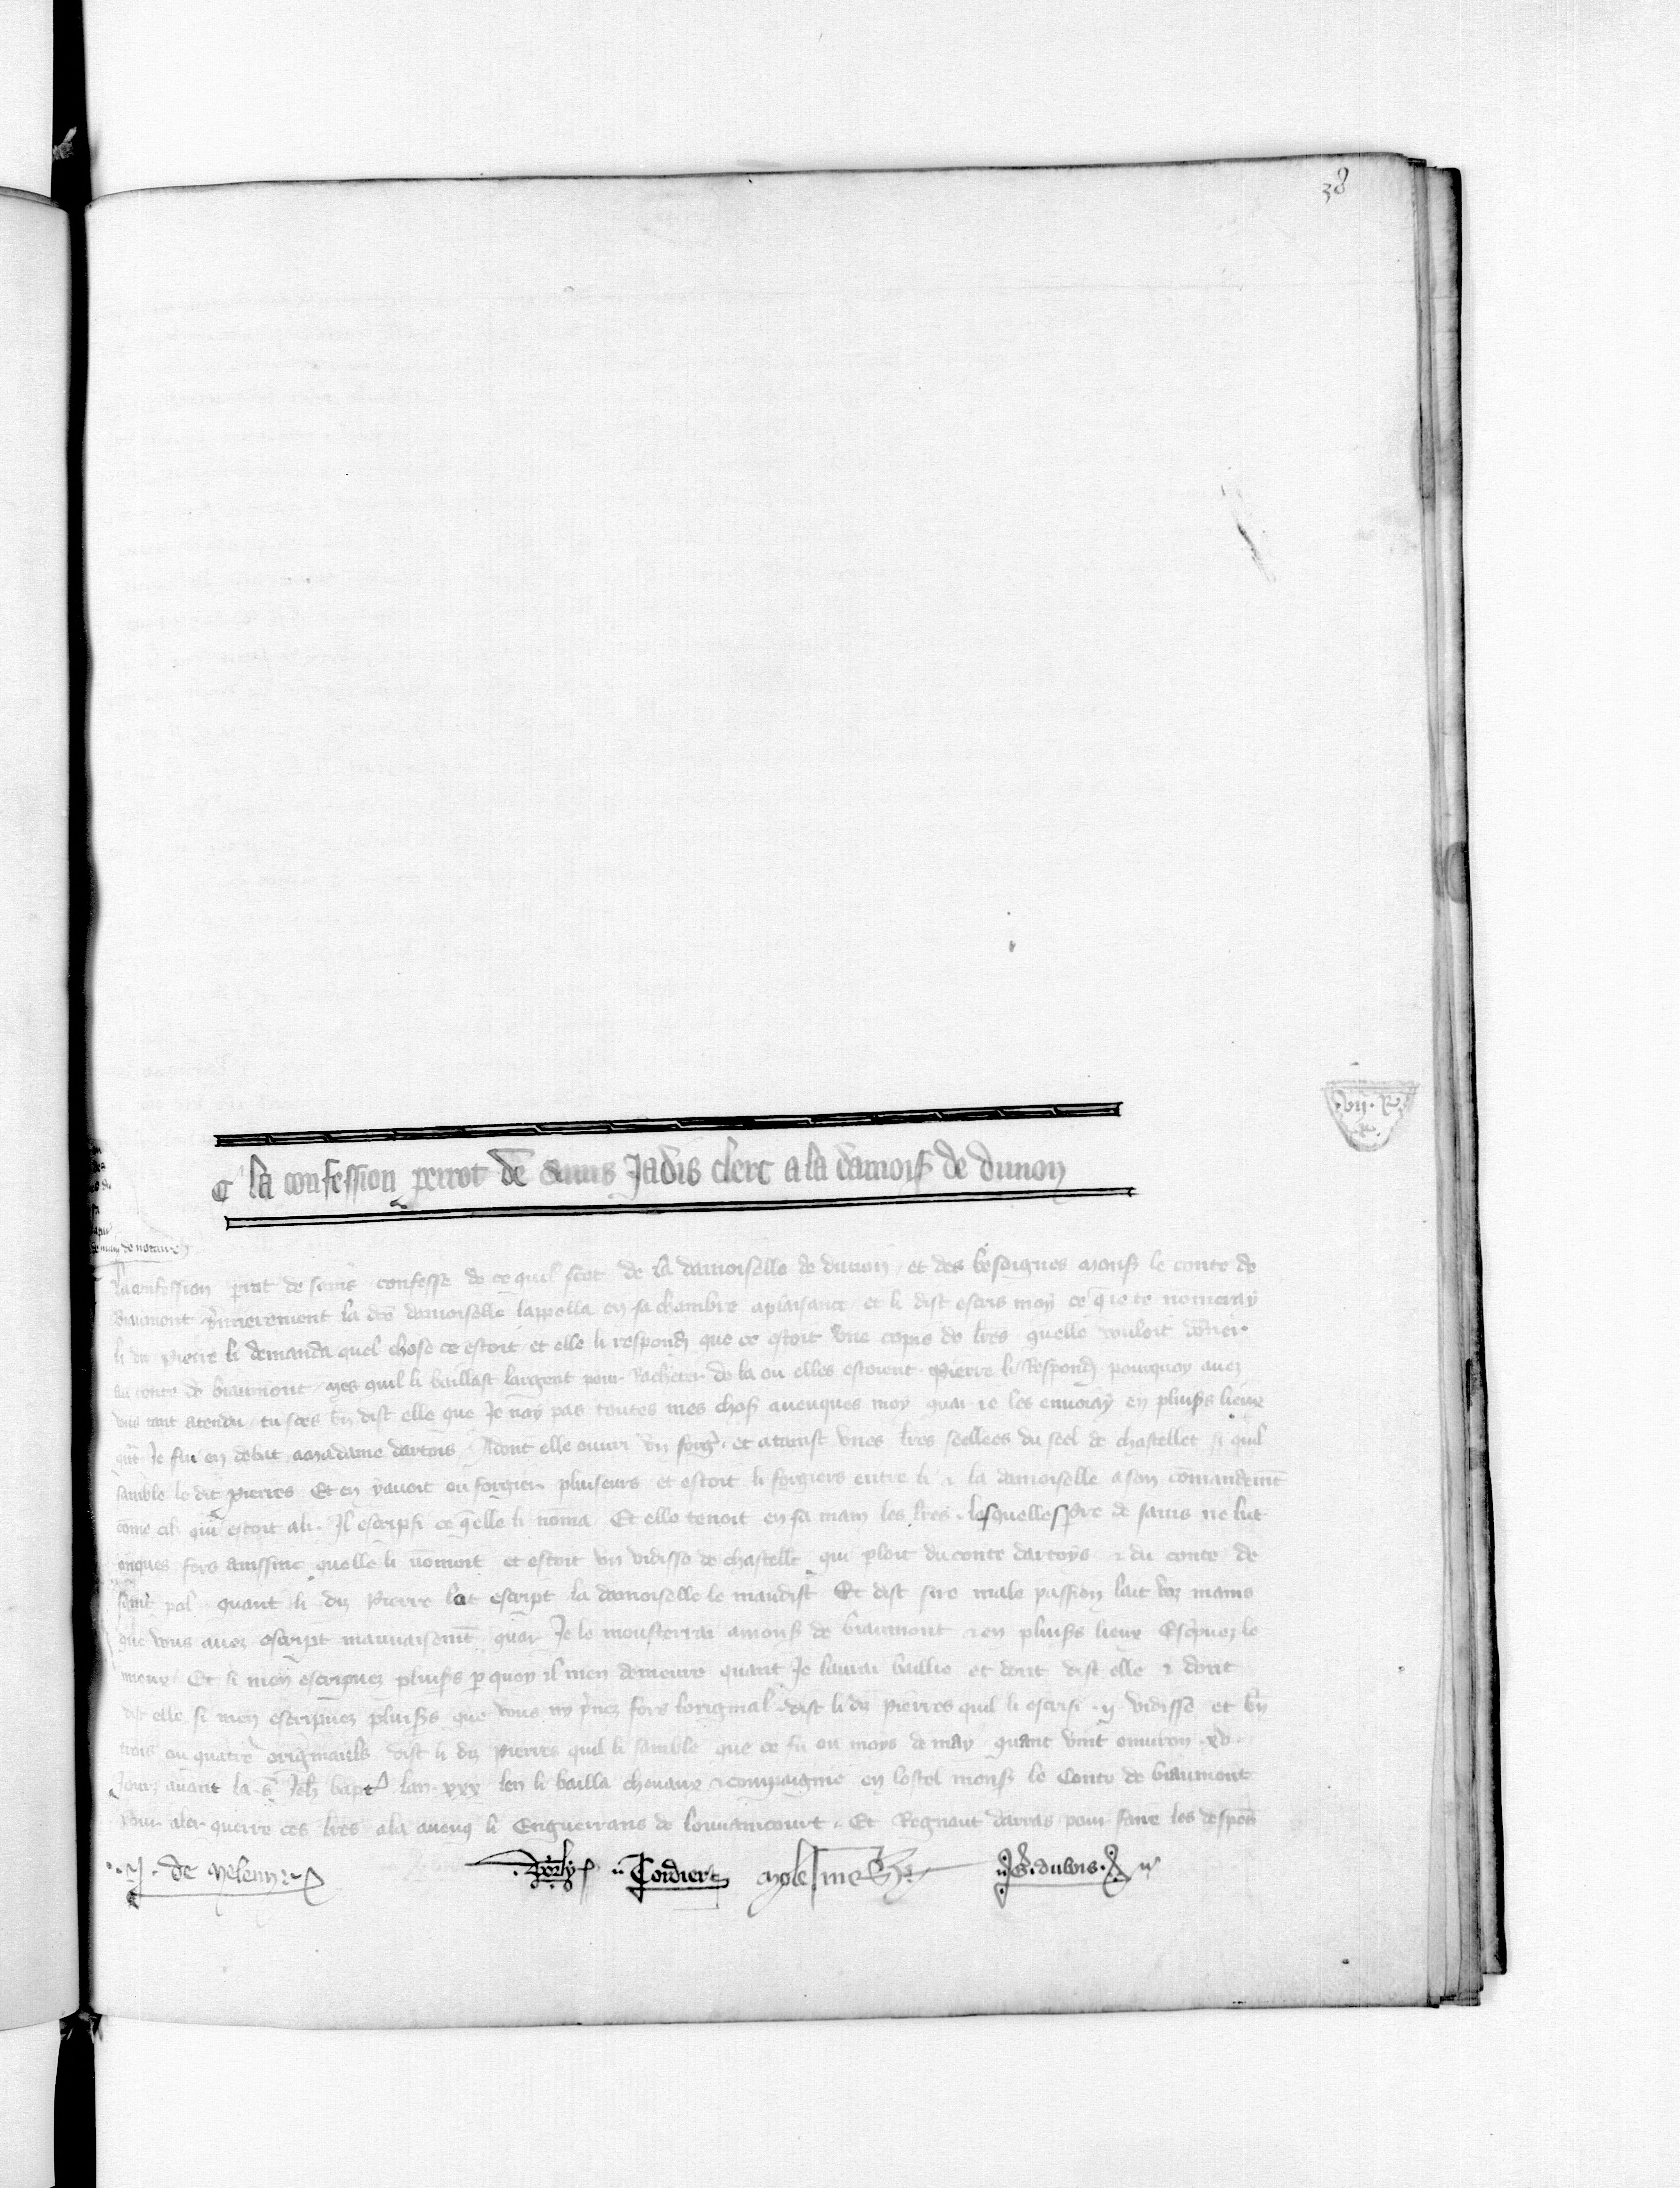 38
la confession perrot de sains Jadis clerc a la damois de dunon
.vij. R.
de main de notaire
La confession prot de sains confesse de ce quil scet de la damoiselle de dunon et des besoignes mons le conte de
biaumont primierement la dte damoiselle lappella en sa chambre a plaisance et li dist escris moy ce q ie te nomeray
li diz Pierre li demanda quel chose ce estoit et elle li respondi que ce estoit une copie de lres quelle vouloit doner
au conte de biaumont mes quil li baillast largent pour Racheter de la ou elles estoient Pierre li Respondi pourquoy avez
vous tant atendu tu sces bn dist elle que Je nay pas toutes mes chos avenques moy quar ie les envoiay en plusrs lieux
qnt Je fui en debat a madame dartois Adont elle ouvri un forgr et atainst unes lres seellees du seel de chastellet si quil
samble le dit Pierres Et en y avoit ou forgier pluseurs et estoit li forgiers entre li & la damoiselle a son comandemt
come cil qui estoit a li Il escripsi ce qelle li noma Et elle tenoit en sa main les lres lesquelles pre de sains ne lut
onques fors aussinc quelle li nomoit et estoit un vidisse de chastellt qui ploit du conte dartoys & du conte de
saint pol quant li diz Pierre lot escript la damoiselle le maudist Et dist sire male passion lait voz mains
que vous avez escript mauvaisemt quar Je le mousterrai a mons de biaumont & en plusrs lieux Escpvez le
mieux Et si men escripvez plusrs p quoy il men demeure quant Je laurai baillie et dont dist elle & dont
dist elle si men escripvez plusrs que vous ny pnez fors loriginal dist li diz Pierres quil li escrisi .ij. vidisse et bn
trois ou quatre originauls dist li diz Pierres quil li samble que ce fu ou moys de may quant vint environ xv
Jours avant la s Jeh bapte lan xxx len li bailla chevaux & compaignie en lostel mons le Conte de biaumont
pour aler querre ces lres ala avenq li Enguerrans de Louvaincourt Et Regnaut darras pour faire les despens
J. de Meleun Dorly Cordier Molesmes G. dubois